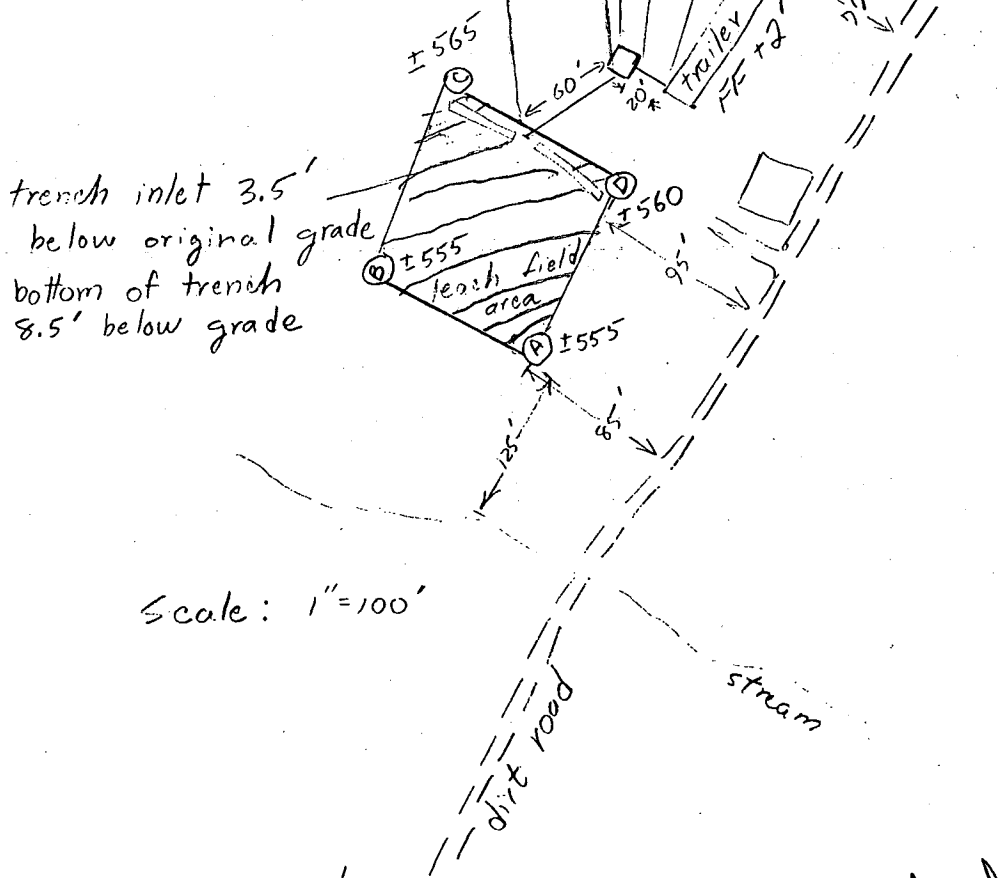 ± 565
C
60'
20'
trailer
FF +2'
trench inlet 3.5'
below original grade
bottom of trench
8.5' below grade
D
± 560
B
± 555
leach field
area
95'
A
± 555
85'
125'
Scale: 1"=100'
stream
dirt road